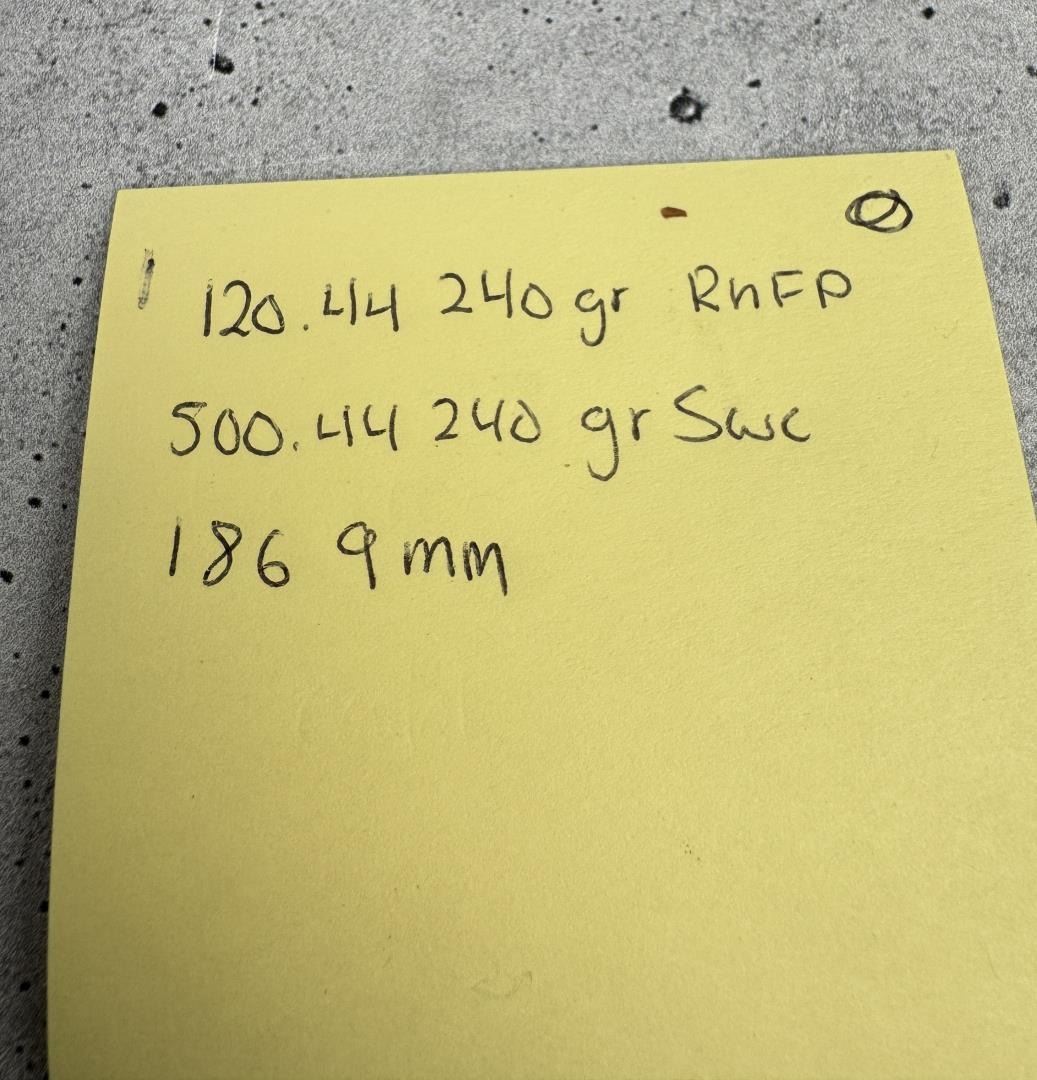 120 .44 240 gr RnFP
500 .44 240 gr Swc
186 9mm